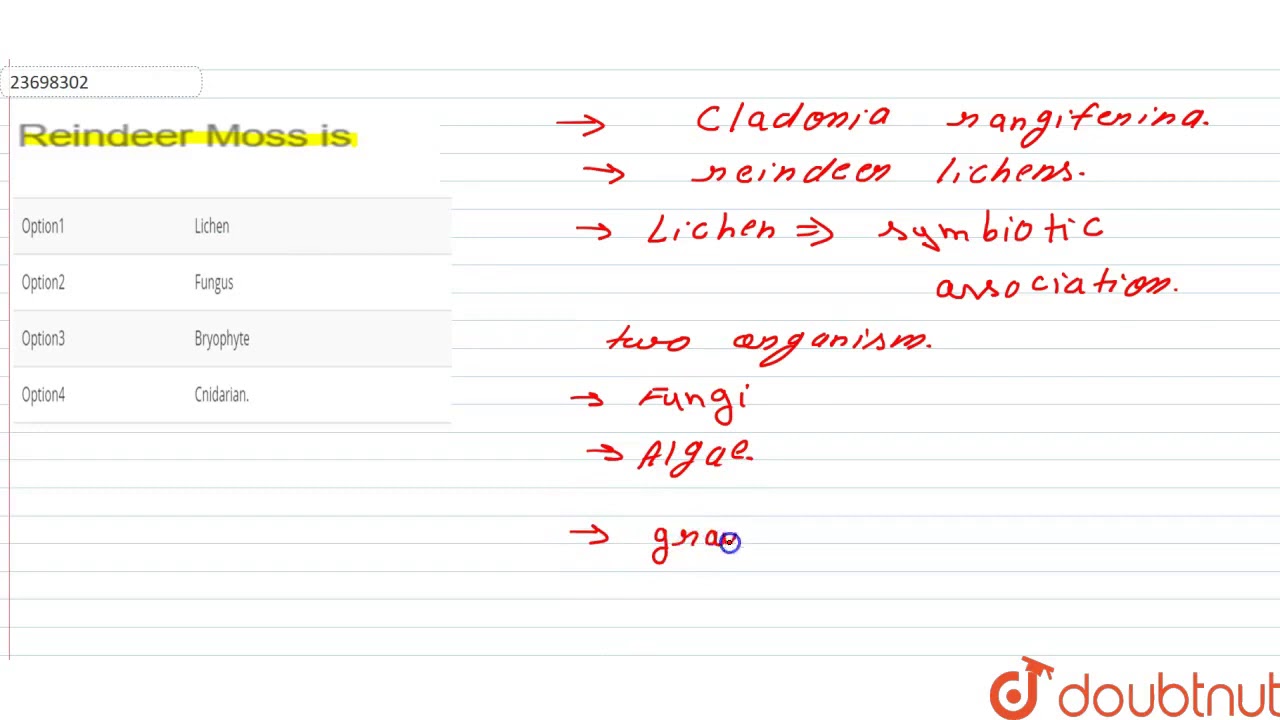 23698302
Reindeer Moss is
Option1 Lichen
Option2 Fungus
Option3 Bryophyte
Option4 Cnidarian.
→ Cladonia rangiferina.
→ reindeer lichens.
→ Lichen ⇒ symbiotic
association.
two organism.
→ Fungi
→ Algae.
→ gra
doubtnut